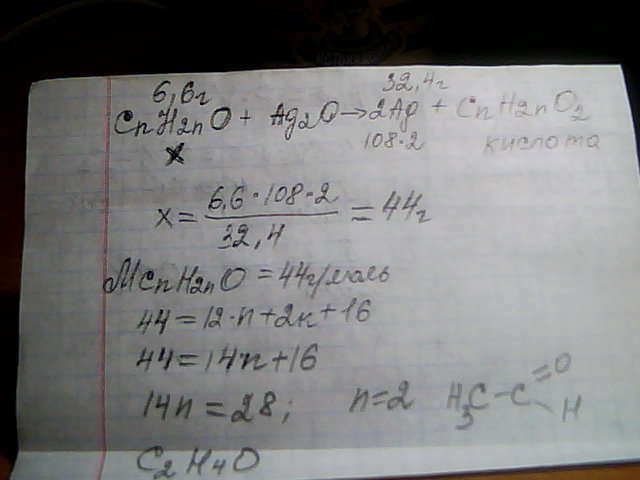 6,6г 32,4г
CnH2nO + Ag2O → 2Ag + CnH2nO2
x 108·2 кислота
x = 6,6·108·2 / 32,4 = 44г
MCnH2nO = 44г/моль
44 = 12·n + 2n + 16
44 = 14n + 16
14n = 28; n = 2 H3C - C =O H
C2H4O